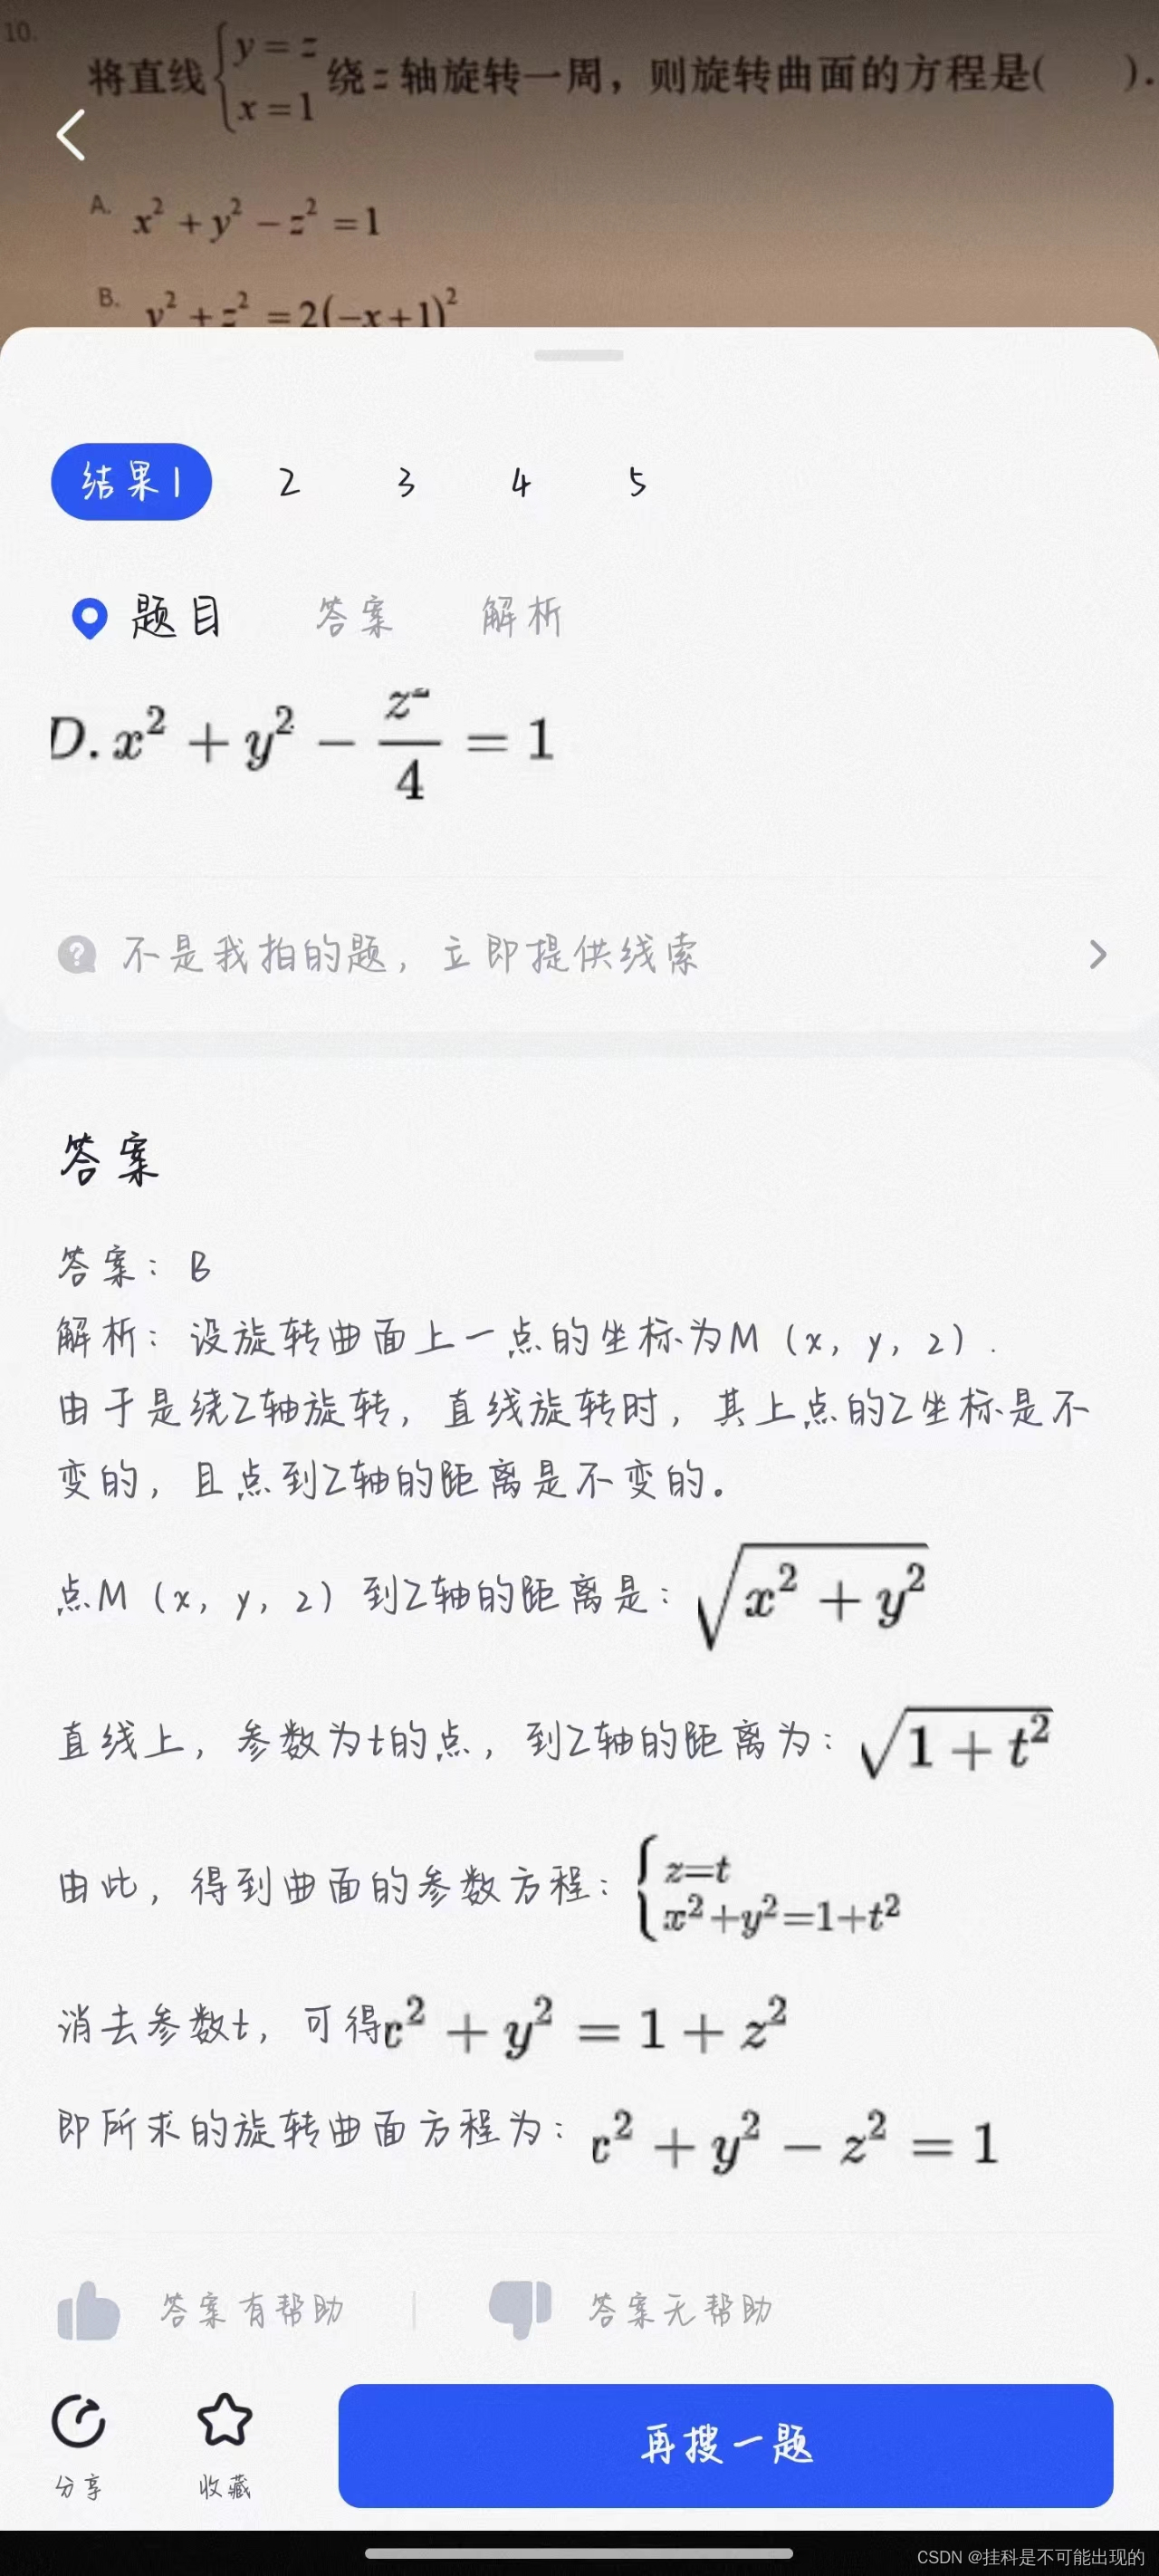 10.
将直线{y=z x=1 绕z轴旋转一周，则旋转曲面的方程是( ).
A. x²+y²−z²=1
B. y²+z²=2(−x+1)²
结果1 2 3 4 5
题目 答案 解析
D. x²+y²−z²/4=1
不是我拍的题，立即提供线索
答案
答案：B
解析：设旋转曲面上一点的坐标为M（x，y，z）.
由于是绕Z轴旋转，直线旋转时，其上点的Z坐标是不
变的，且点到Z轴的距离是不变的。
点M（x，y，z）到Z轴的距离是：√(x²+y²)
直线上，参数为t的点，到Z轴的距离为：√(1+t²)
由此，得到曲面的参数方程：{z=t x²+y²=1+t²
消去参数t，可得x²+y²=1+z²
即所求的旋转曲面方程为：x²+y²−z²=1
答案有帮助 | 答案无帮助
分享 收藏 再搜一题
CSDN @挂科是不可能出现的